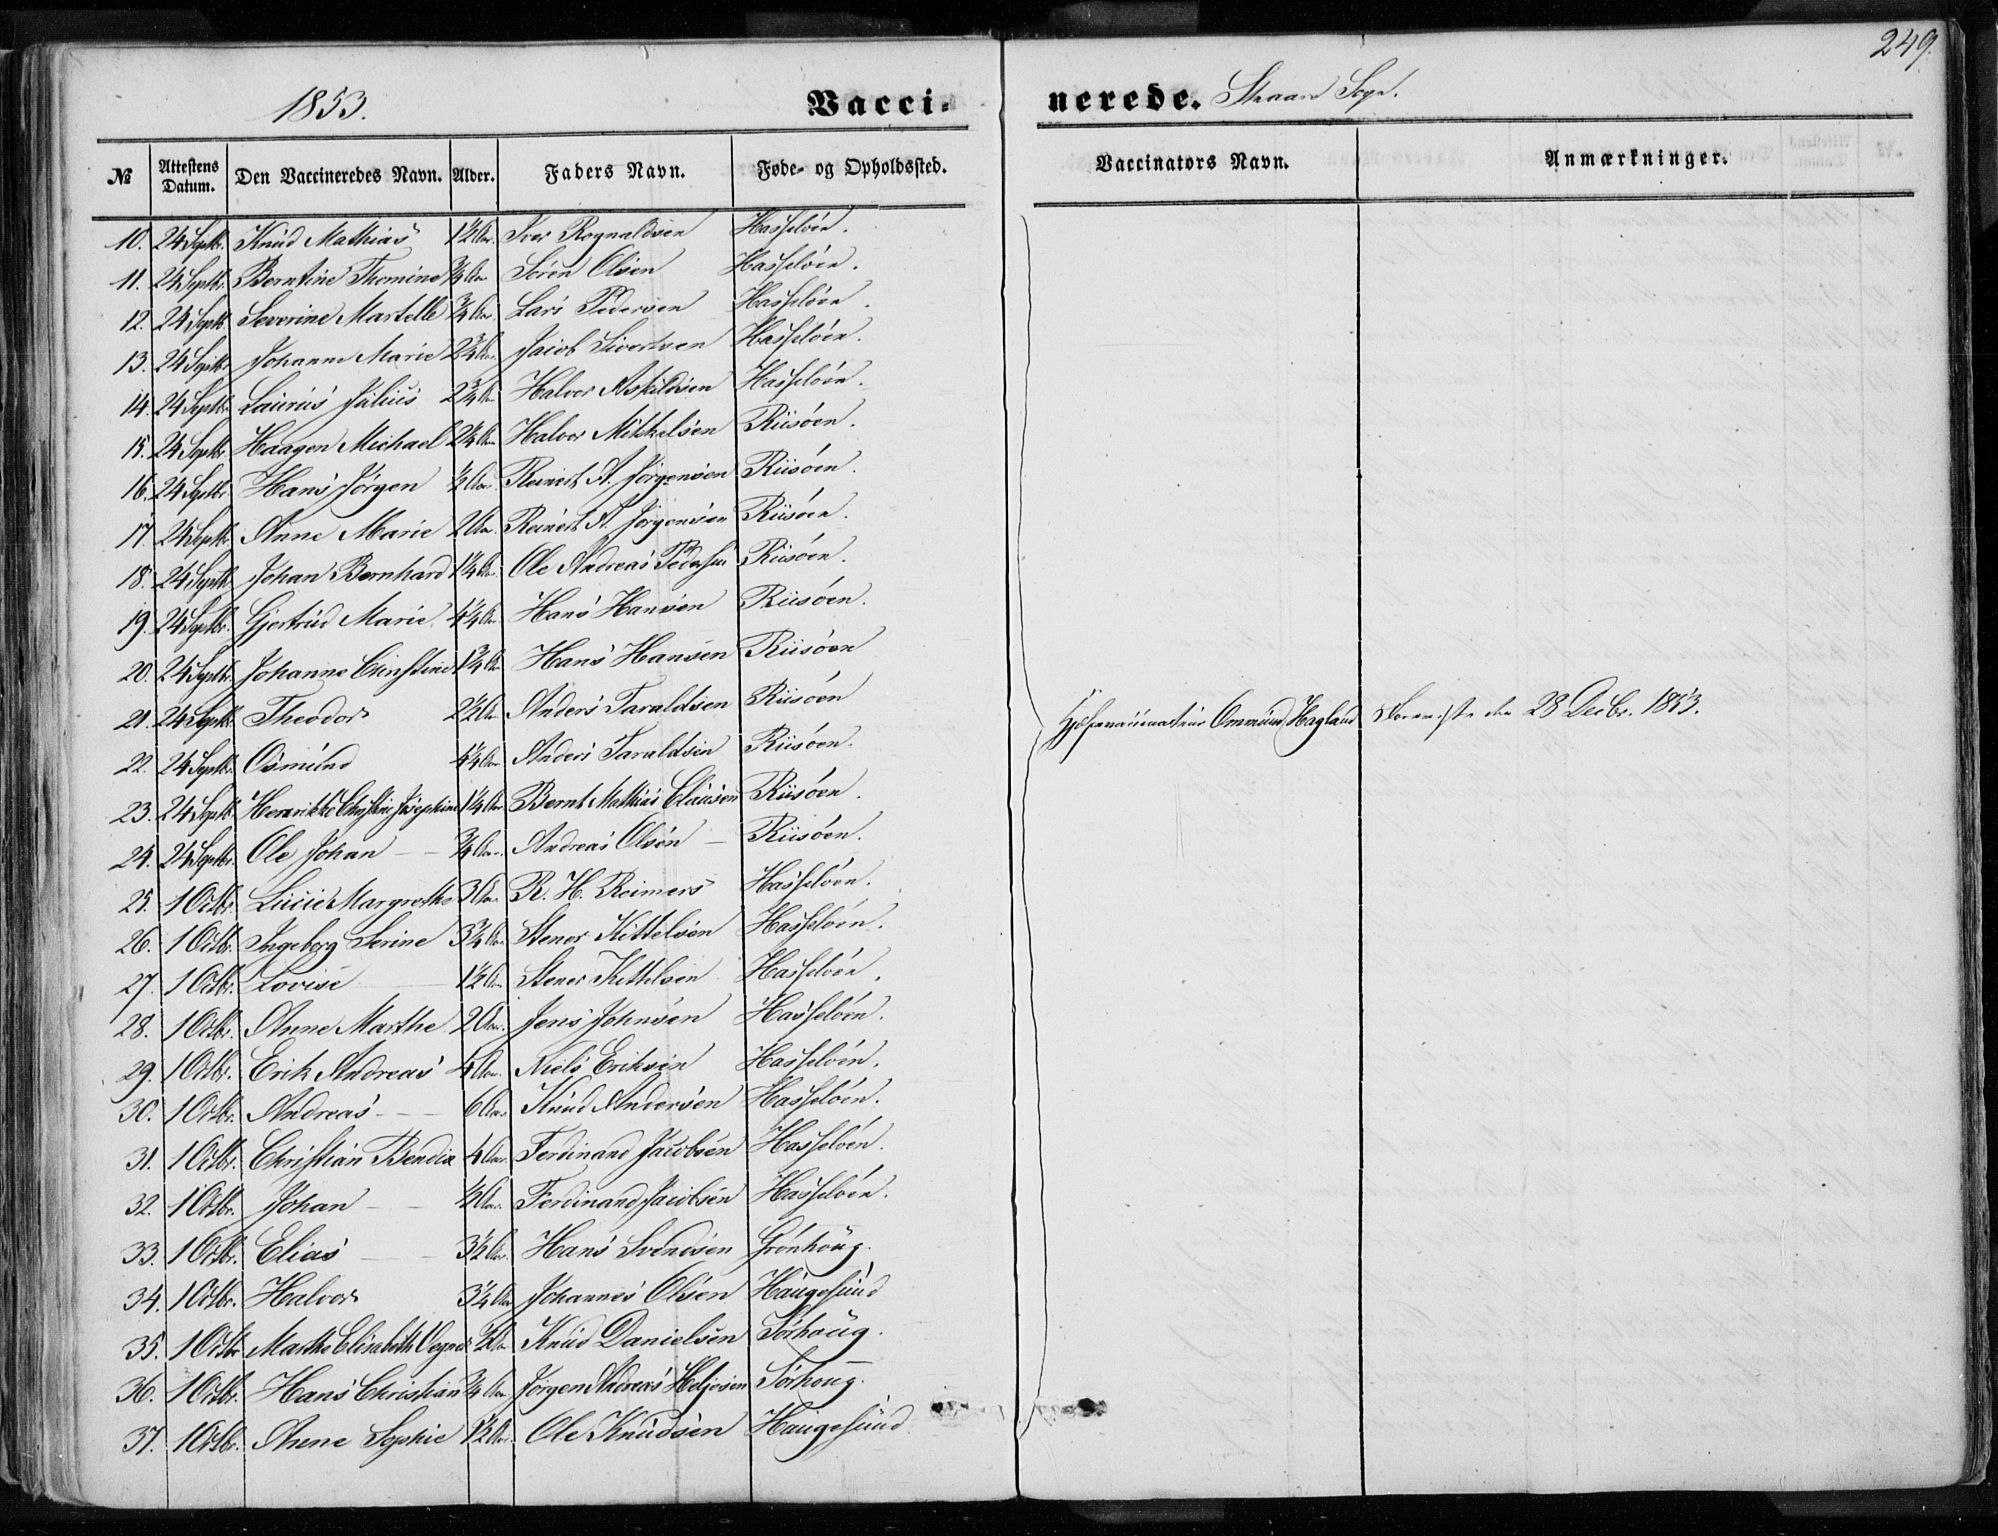 249.
1853. Vacci- nerede. Skaare Sogn.
№ Attestens Datum. Den Vaccineredes Navn. Alder. Faders Navn. Føde- og Opholdssted. Vaccinators Navn. Anmærkninger.
10. 24 Septbr. Knud Mathias 1½ Aar. Iver Rognaldsen Hasseløen.
11. 24 Septbr. Berntine Thomine ¾ Aar Søren Olsen Hasseløen.
12. 24 Septbr. Severine Martelle ¾ Aar. Lars Pedersen Hasseløen.
13. 24 Septbr. Johanne Marie 2¾ Aar. Jacob Sivertsen Hasseløen.
14. 24 Septbr. Laurus Julius 2¾ Aar Halvor Askildsen Hasseløen.
15. 24 Septbr. Haagen Michael 2¼ Aar Halvor Mikkelsen Riisøen.
16. 24 Septbr. Hans Jørgen ½ Aar Reinert A. Jørgensen Riisøen.
17. 24 Septbr. Anne Marie 2 Aar. Reinert A. Jørgensen Riisøen.
18. 24 Septbr. Johan Bernhard 1¼ Aar Ole Andreas Pedersen Riisøen.
19. 24 Septbr. Gjertrud Marie 4¼ Aar Hans Hansen Riisøen.
20. 24 Septbr. Johanne Christine 1¾ Aar Hans Hansen Riisøen
21. 24 Septbr. Theodor 2½ Aar Anders Taraldsen Riisøen
Omund Hagland 28 Decbr. 1853.
22. 24 Septbr. Osmund 4¼ Aar Anders Taraldsen Riisøen.
23. 24 Septbr. Henrikke Christine Josephine 1¼ Aar Bernt Mathias Clausen Riisøen.
24. 24 Septbr. Ole Johan ¾ Aar. Andreas Olsen Riisøen.
25. 1 Octbr. Lucie Margrethe 3 Aar R. H. Reimers Hasseløen.
26. 1 Octbr. Ingeborg Serine 3¾ Aar. Stener Kittelsen Hasseløen.
27. 1 Octbr. Lovise 1½ Aar Stener Kittelsen Hasseløen.
28. 1 Octbr. Anne Marthe 2 Aar. Jens Johnsen Hasseløen.
29. 1 Octbr. Erik Andreas 4 Aar. Niels Eriksen Hasseløen.
30. 1 Octbr. Andreas 6 Aar Knud Andersen Hasseløen.
31. 1 Octbr. Christian Bendix 4 Aar. Ferdinand Jacobsen Hasseløen.
32. 1 Octbr. Johan ½ Aar. Ferdinand Jacobsen Hasseløen.
33. 1 Octbr. Elias 3½ Aar. Hans Svendsen Grønhoug.
34. 1 Octbr. Halvor 3¼ Aar Johannes Olsen Haugesund
35. 1 Octbr Marthe Elisabeth ½ Aar Knud Danielsen Sørhoug.
36. 1 Octbr. Hans Christian ¾ Aar Jørgen Andreas Heljesen Sørhoug.
37. 1 Octbr. Anne Sophie 1½ Aar. Ole Knudsen Haugesund